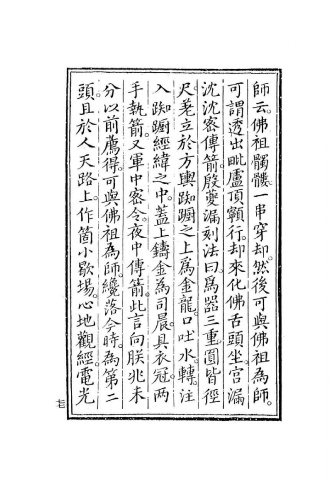 師云。佛祖髑髏。一串穿却。然後可與佛祖為師。
可謂透出毗盧頂𩕳行。却來化佛舌頭坐。宮漏
沈沈密傳箭。殷夔漏刻法曰。為器三重。圓皆徑
尺。差立於方輿踟蹰之上。為金龍口吐水。轉注
入踟蹰經緯之中。蓋上鑄金為司晨。具衣冠。兩
手執箭。又軍中密令。夜中傳箭。此言向朕兆未
分以前薦得。可與佛祖為師。纔落今時。為第二
頭。且於人天路上。作箇小歇場。心地觀經。電光